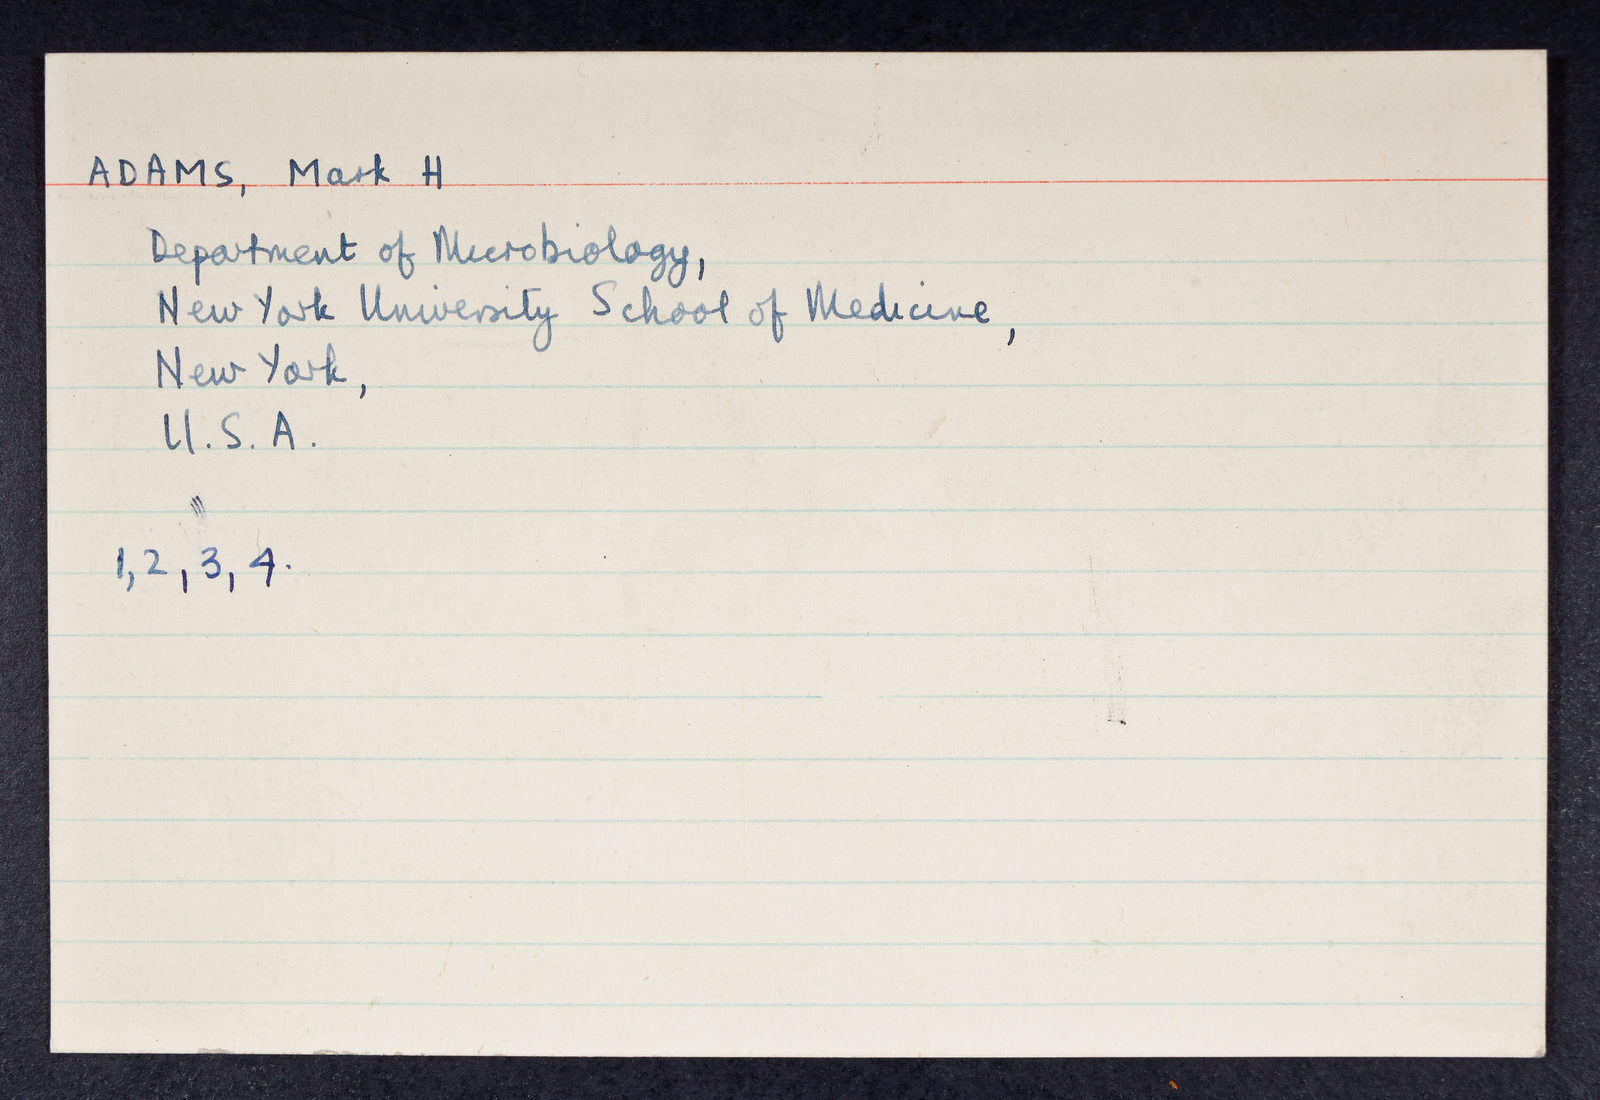 ADAMS, Mark H
Department of Microbiology,
New York University School of Medicine,
New York,
U.S.A.
1,2,3,4.